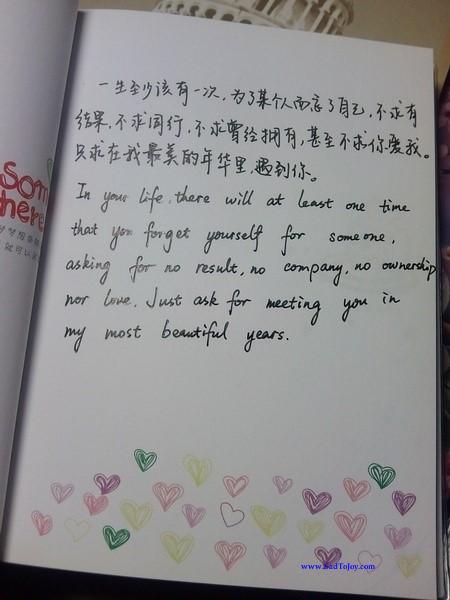 一生至少该有一次，为了某个人而忘了自己，不求有
结果，不求同行，不求曾经拥有，甚至不求你爱我。
只求在我最美的年华里，遇到你。
In your life, there will at least one time
that you forget yourself for someone,
asking for no result, no company, no ownership
nor love. Just ask for meeting you in
my most beautiful years.
som
here
www.SadToJoy.com